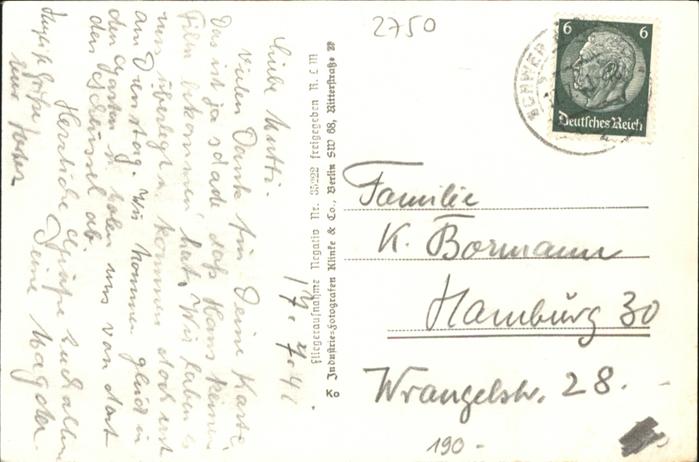 2750
SCHWER
6 6
Deutsches Reich
17. 7. 41
Liebe Mutti.
Vielen Dank für Deine Karte.
Das ist ja schade daß Hans keinen
bekommen hat. Wir haben es
uns überlegt u. kommen doch erst
am Dienstag. Wir kommen gleich in
den Garten u. holen uns von dort
den Schlüssel ab.
Herzliche Grüße Euch allen
Deine Magda.
Fliegeraufnahme Negativ Nr. 35222 freigegeben R. L. M
Ko Industrie-Fotografen Klinke & Co., Berlin SW 68, Ritterstraße
Familie
K. Bormann
Hamburg 30
Wrangelstr. 28.
190-